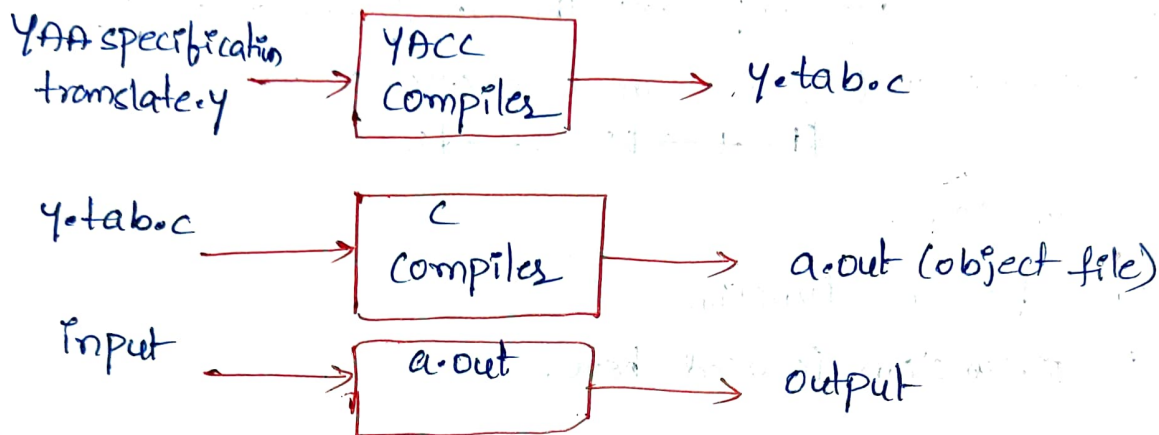 YAA specification
translate.y
YACC
Compiler
y.tab.c
y.tab.c
C
Compiler
a.out (object file)
input
a.out
output